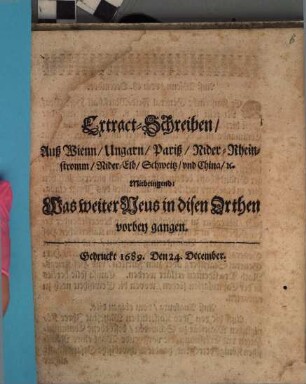 Extract-Schreiben/
Auß Wienn/ Ungarn/ Pariß/ Nider/ Rhein-
stromm/ Nider-Elb/ Schweitz/ vnd China/ ꝛc.
Mitbringend:
Was weiter Neus in disen Orthen
vorbey gangen.
Gedruckt 1689. Den 24. December.